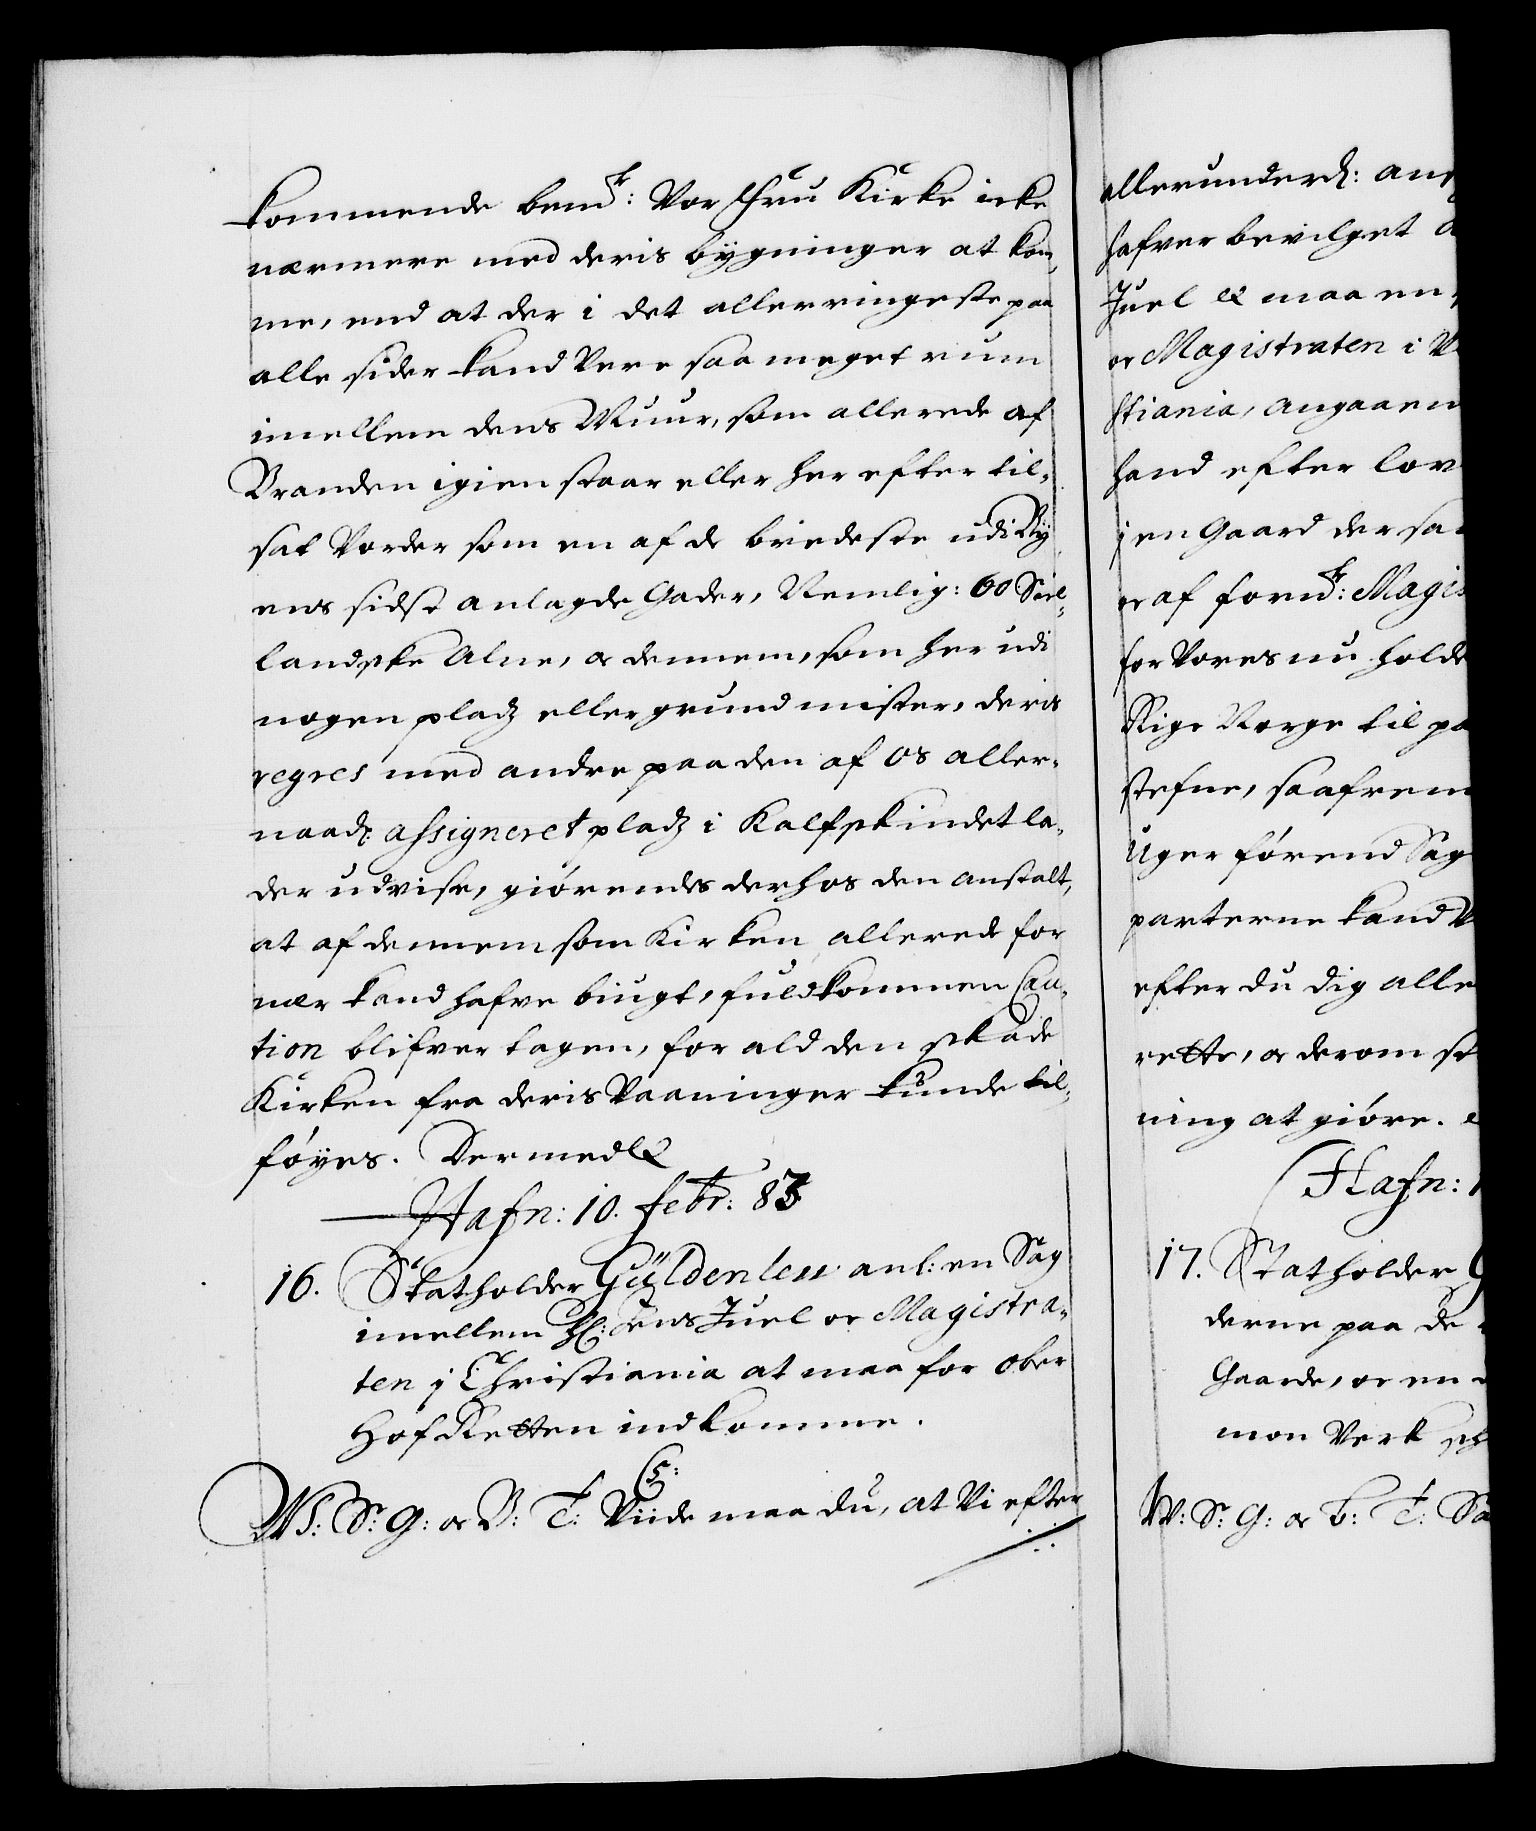 kommende bemt: Vor Fru Kirke icke
nærmere med deris bygninger at kom,
me, end at der i det allerringeste paa
alle sider kand Vere saa meget rum
imellem dens Muur, som allerede af
Branden igien staar eller her efter til,
sat Vorder som en af de briedeste udi By
ens sidst anlagde Gader, Nemlig: 60 Siel,
landske Alne, oc dennem, som her udi
nogen pladz eller grund mister, deris
regres med andre paa den af os aller,
naadt assigneret pladz i Kalfskindet la,
der udvise, giörendes derhos den anstalt,
at af dennem som Kirken allerede for
nær kand hafve biugt, fuldkommen Cau,
tion blifver tagen, for ald den skade
Kirken fra deris Vaaninger kunde til,
föyes. Dermed &
Hafn: 10. febr: 83
16. Statholder Güldenleu anl: en Sag
imellem Hl: Jens Juel oc Magistra,
ten j Christiania at maa for ober
Hof Retten indkomme.
C5:
W: Sr: G: oc B: T: Viide maa du, at Vi efter
allerunderd: ans
hafver bevilget
Juel & maa en,
oc Magistraten i
stiania, angaaen
hand efter lov
j en Gaard der sa
oc af fornt: Magis
for Vores nu holde
Rige Norge til pa
stefne, saafrem
Uger förend Sag
parterne kand
efter du dig alle
rette, oc derom
ning at giöre.
Hafn: 1
17. Statholder G
derne paa de
Gaarde, oc en
mon Verk
W: Sr: G: oc b: T: Sa